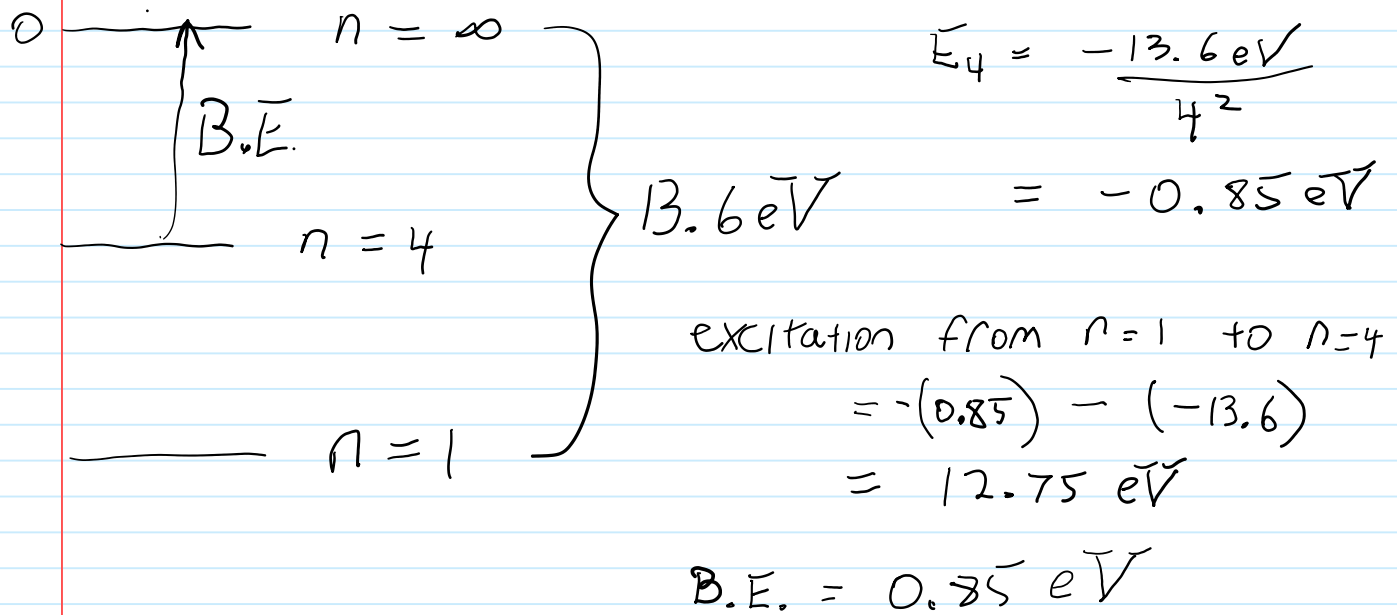 0 n = ∞
B.E.
n = 4
n = 1
13.6 eV
E₄ = -13.6 eV / 4²
= -0.85 eV
excitation from n = 1 to n = 4
= -(0.85) - (-13.6)
= 12.75 eV
B.E. = 0.85 eV